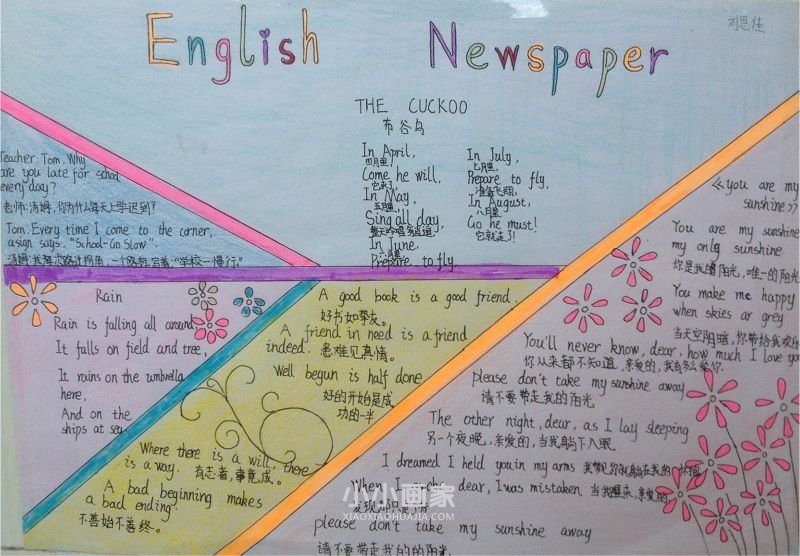 English Newspaper
刘恩佳
THE CUCKOO
布谷鸟
In April,
四月里,
Come he will,
它来了
In May,
五月里,
Sing all day,
In June,
六月里
Prepare to fly
In July,
七月里,
Prepare to fly,
准备飞翔,
In August,
八月里
Go he must!
它就走了!
Teacher: Tom. Why
are you late for school
every day?
老师:汤姆,你为什么每天上学迟到?
Tom: Every time I come to the corner,
a sign says. "School-Go Slow".
汤姆:我每次路过拐角,一个路标写着:"学校—慢行".
Rain
Rain is falling all around
It falls on field and tree,
It rains on the umbrella
here,
And on the
ships at sea.
A good book is a good friend.
好书如挚友。
A friend in need is a friend
indeed. 患难见真情。
Well begun is half done
好的开始是成
功的一半
Where there is a will, there
is a way. 有志者,事竟成。
A bad beginning makes
a bad ending.
不善始不善终。
《you are my
sunshine》
You are my sunshine
my only sunshine
你是我的阳光,唯一的阳光
You make me happy
when skies ar grey
当天空阴暗,你带给我欢乐
You'll never know, dear, how much I love you
你从来都不知道,亲爱的,我有多么爱你.
please don't take my sunshine away
请不要带走我的阳光
The other night, dear, as I lay sleeping
另一个夜晚,亲爱的,当我躺下入眠
I dreamed I held you in my arms
When I dear, I was mistaken 当我醒来,亲爱的,
小小画家
XIAOXIAOHUAJIA.COM
please don't take my sunshine away
请不要带走我的的阳光